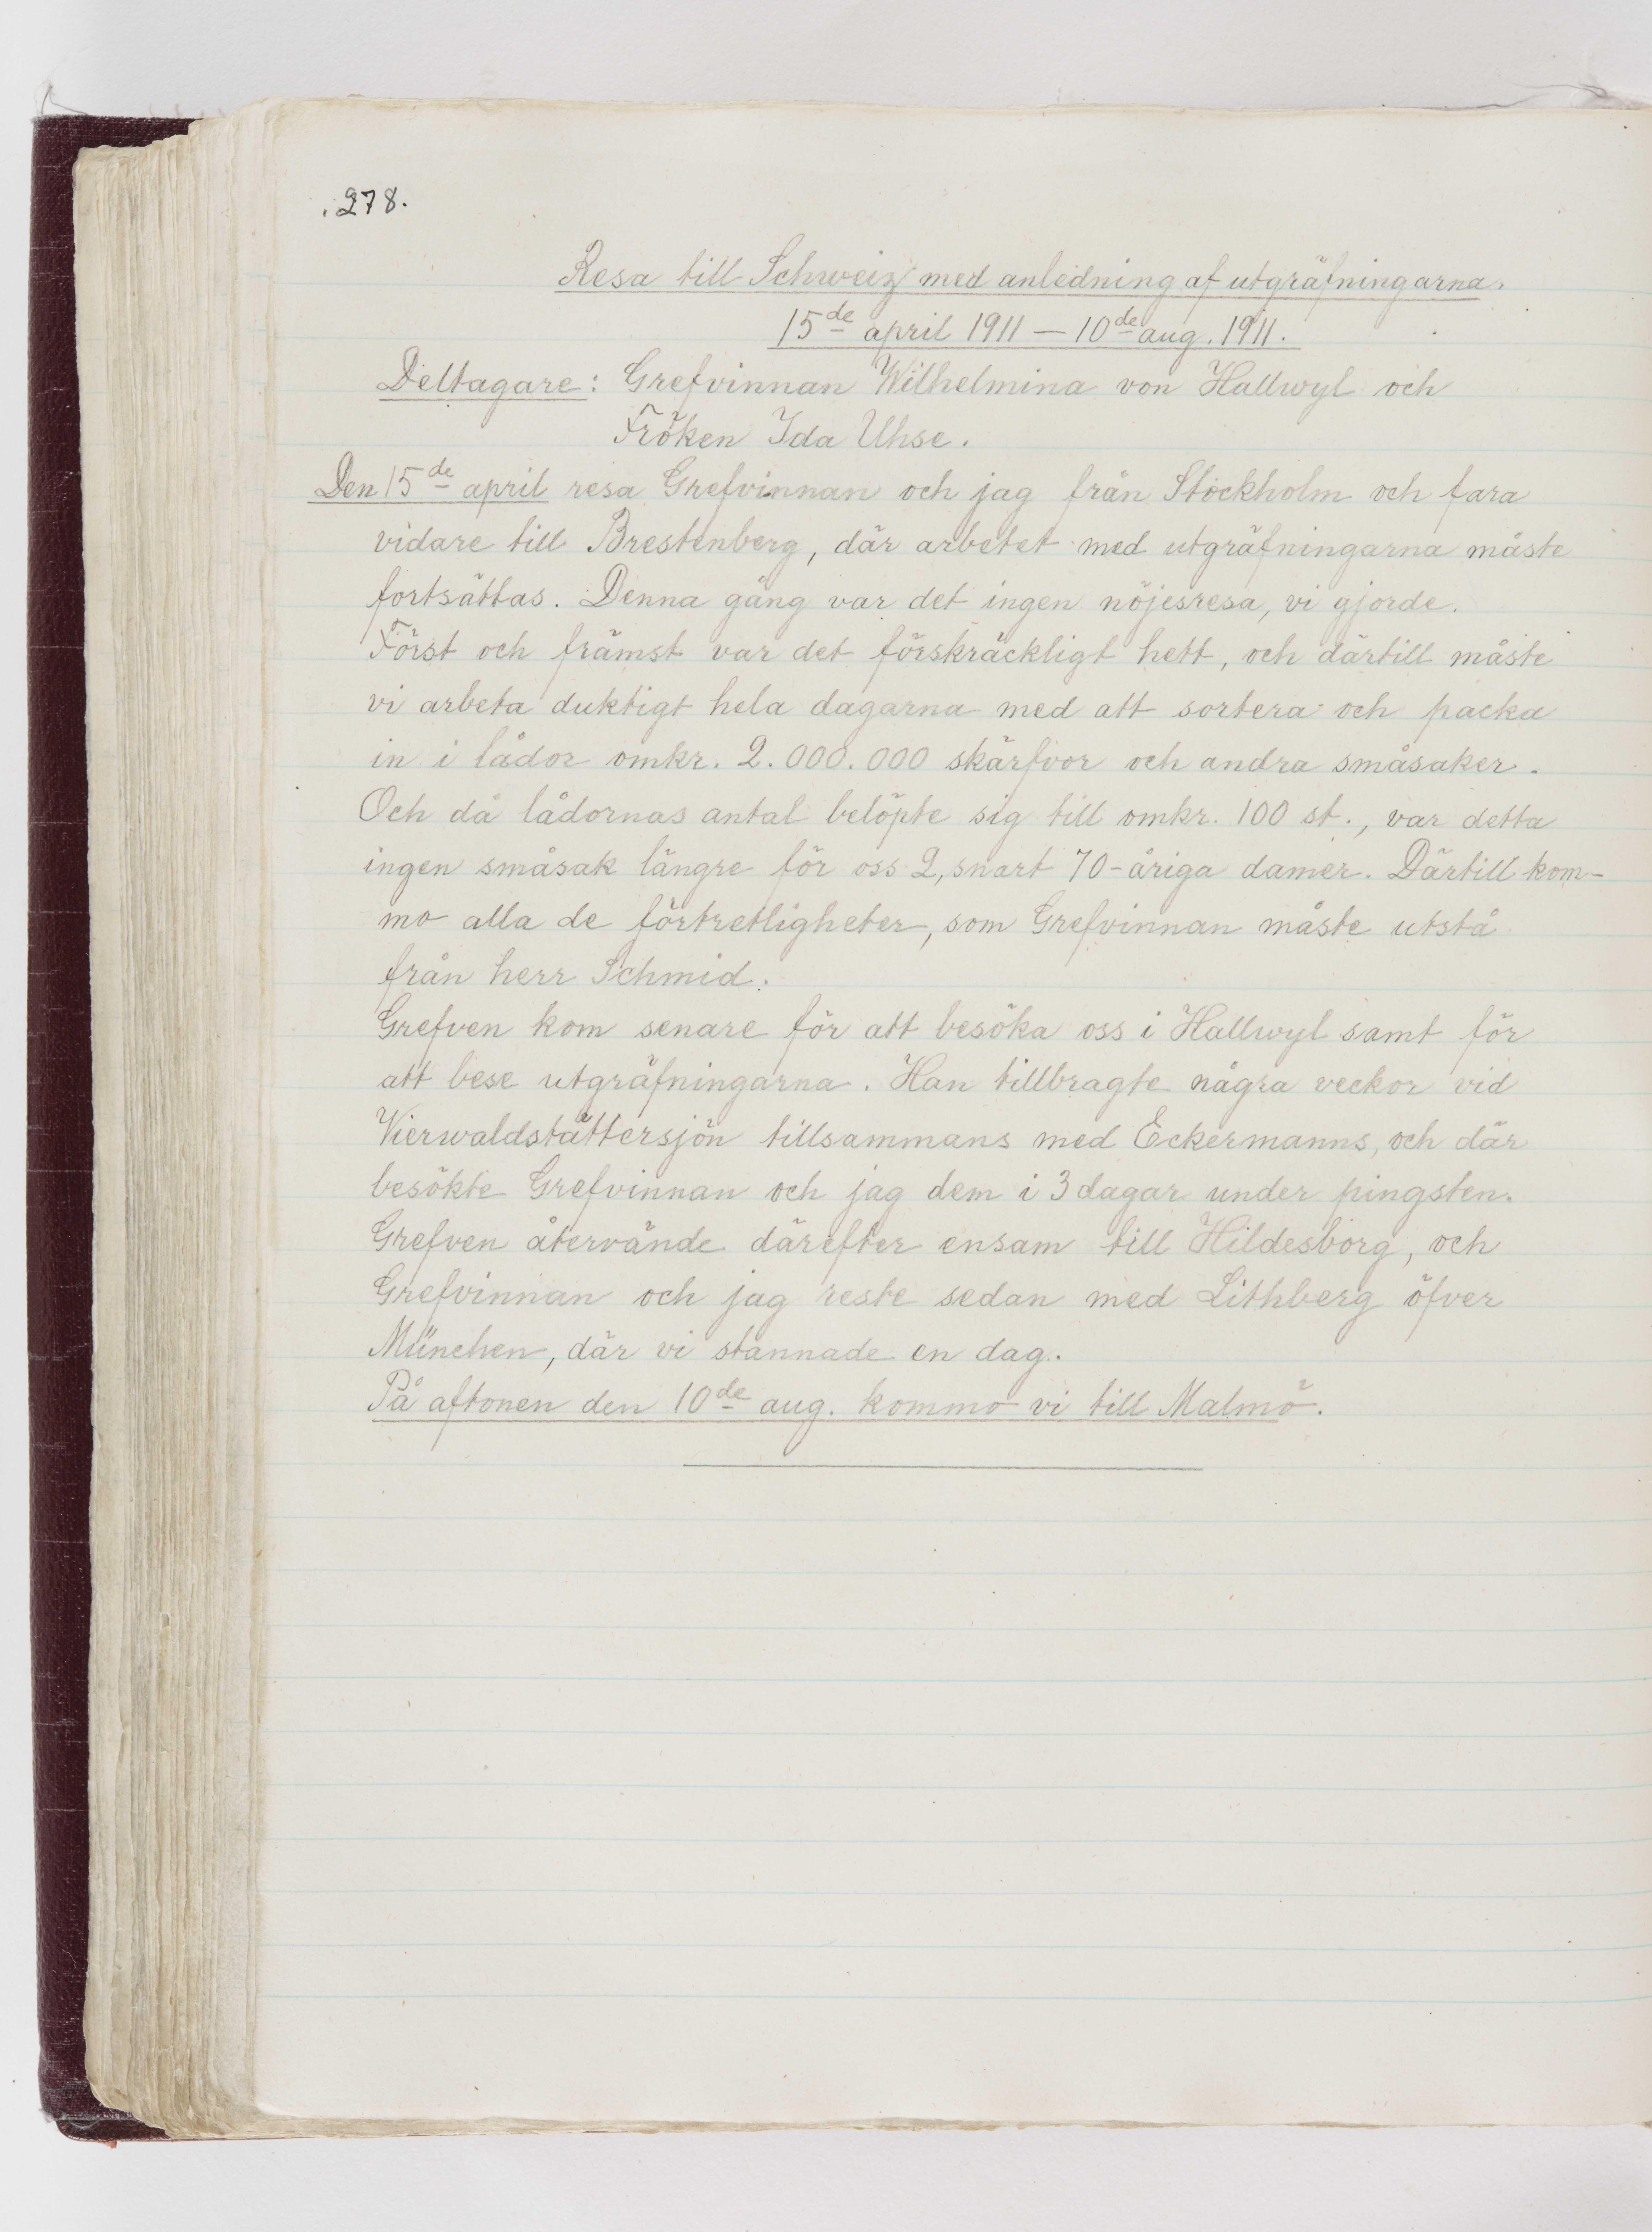 278.
Resa till Schweiz med anledning af utgräfningarna.
15de april 1911 — 10de aug. 1911.
Deltagare: Grefvinnan Wilhelmina von Hallwyl och
Fröken Ida Uhse.
Den 15de april resa Grefvinnan och jag från Stockholm och fara
vidare till Brestenberg, där arbetet med utgräfningarna måste
fortsättas. Denna gång var det ingen nöjesresa, vi gjorde.
Först och främst var det förskräckligt hett, och därtill måste
vi arbeta duktigt hela dagarna med att sortera och packa
in i lådor omkr. 2.000.000 skärfvor och andra småsaker.
Och då lådornas antal belöpte sig till omkr. 100 st., var detta
ingen småsak längre för oss 2, snart 70-åriga damer. Därtill kom-
mo alla de förtretligheter, som Grefvinnan måste utstå
från herr Schmid.
Grefven kom senare för att besöka oss i Hallwyl samt för
att bese utgräfningarna. Han tillbragte några veckor vid
Vierwaldstättersjön tillsammans med Eckermanns, och där
besökte Grefvinnan och jag dem i 3 dagar under pingsten.
Grefven återvände därefter ensam till Hildesborg, och
Grefvinnan och jag reste sedan med Lithberg öfver
München, där vi stannade en dag.
På aftonen den 10de aug. kommo vi till Malmö.